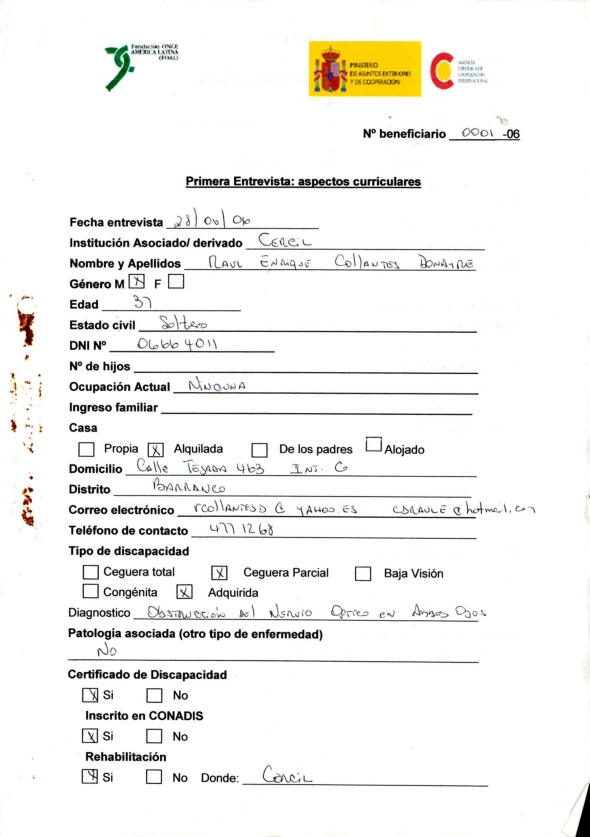 Fundación ONCE
AMÉRICA LATINA
(FOAL)
MINISTERIO
DE ASUNTOS EXTERIORES
Y DE COOPERACIÓN
AGENCIA
ESPAÑOLA DE
COOPERACIÓN
INTERNACIONAL
Nº beneficiario 0001 -06
Primera Entrevista: aspectos curriculares
Fecha entrevista 28/06/06
Institución Asociado/ derivado CERCIL
Nombre y Apellidos RAUL ENRIQUE COllANTES DONAYRE
Género M X F
Edad 37
Estado civil Soltero
DNI Nº 06664011
Nº de hijos
Ocupación Actual NINGUNA
Ingreso familiar
Casa
Propia X Alquilada De los padres Alojado
Domicilio Calle TEJADA 463 INT. C
Distrito BARRANCO
Correo electrónico rcollANTESD @ YAHOO.ES CDRAULE@hotmail.com
Teléfono de contacto 4771268
Tipo de discapacidad
Ceguera total X Ceguera Parcial Baja Visión
Congénita X Adquirida
Diagnostico OBSTRUCCIÓN del NERVIO OPTICO EN AMBOS OJOS
Patología asociada (otro tipo de enfermedad)
NO
Certificado de Discapacidad
X Si No
Inscrito en CONADIS
X Si No
Rehabilitación
X Si No Donde: CERCIL